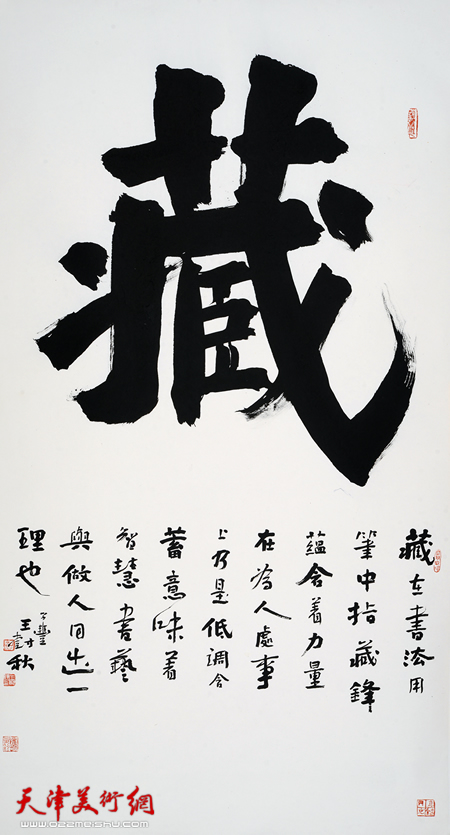 藏
藏在書法用
筆中指藏鋒
蘊含着力量
在為人處事
上乃是低調含
蓄意味着
智慧書藝
與做人同出一
理也
天津美術網
www.022meishu.com